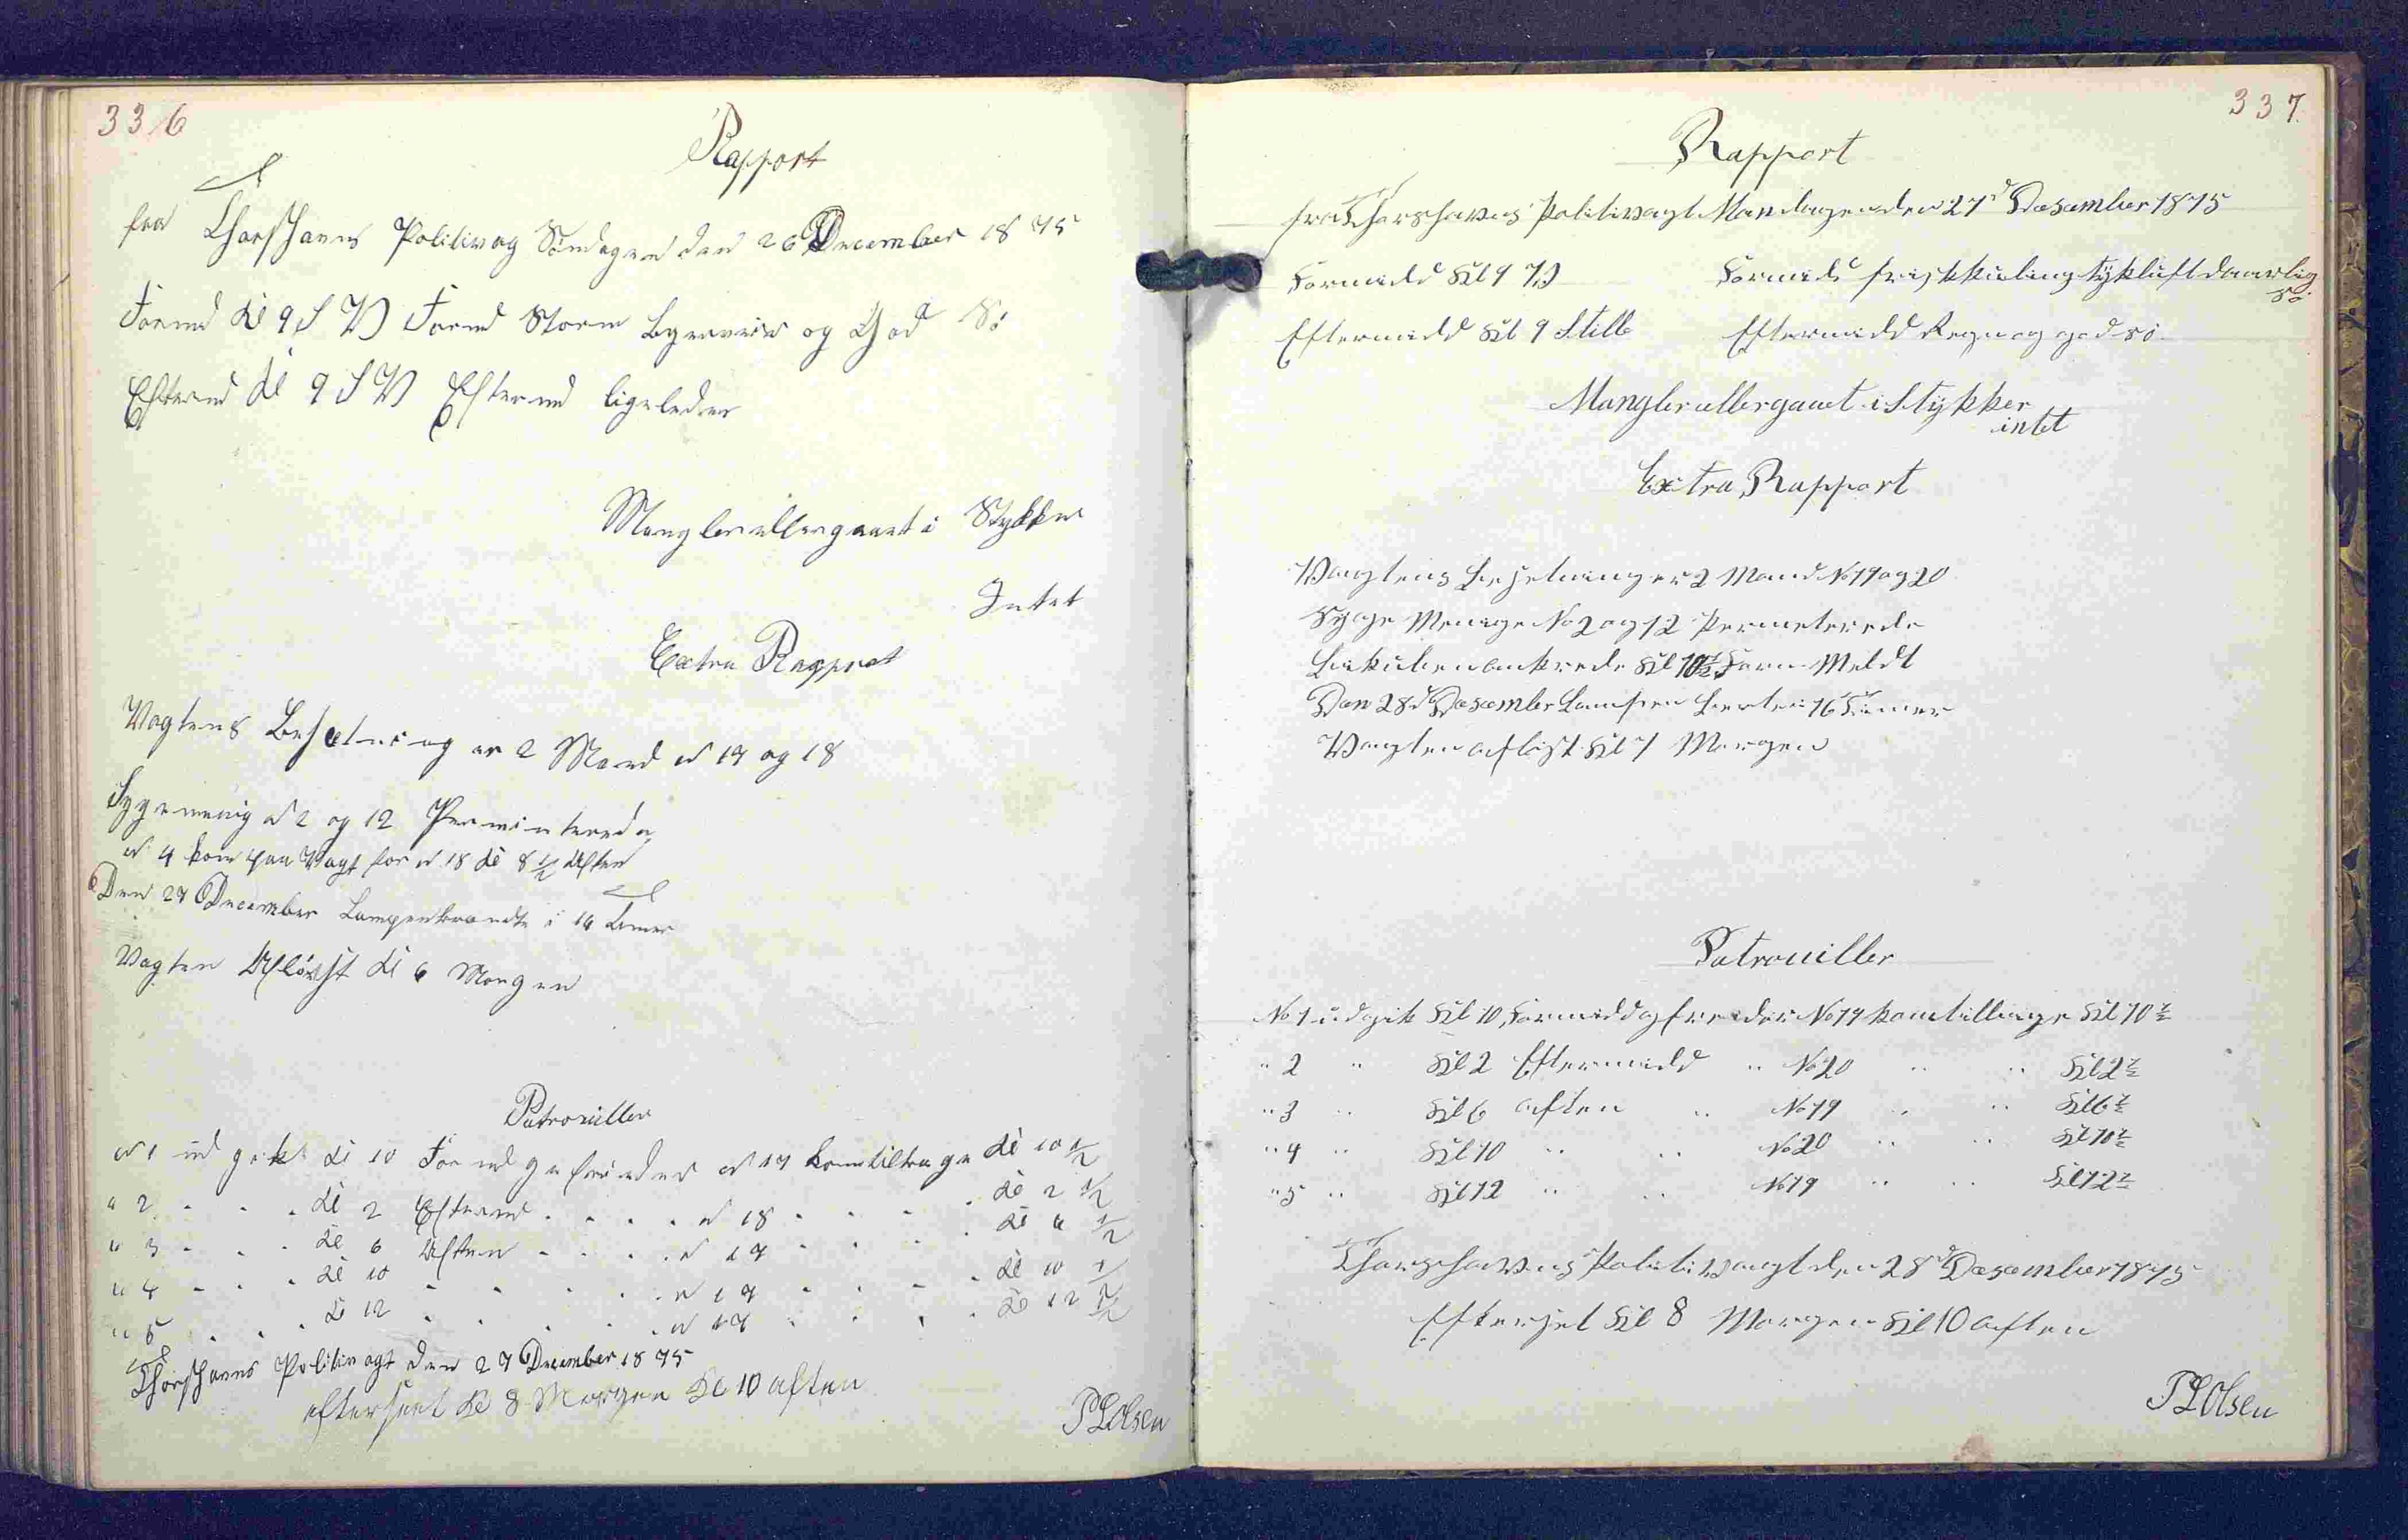 336
Rapport
fra Thorshavns Politivag Søndagen den 26 December 1875
Formd Kl 9 S V Formd Storm Bygeveir og God Sö
Eftermd Kl 9 S V Eftermd ligeleder
Mangler eller gaaet i Stykker
Intet
Extra Rapport
Vagtens Besetning er 2 Mand N 17 og 18
Sygemenig N 2 og 12 Perminterede
N 4 kom paa Vagt for N 18 Kl 8 1/2 Aften
Den 27 December Lampen brændte i 16 Timer
Vagten Aflöst Kl 6 Morgen
Patrouiller
N 1 udgik Kl 10 Formd gefreider N 17 kom tilbage Kl 10 1/2
" 2 . . . Kl 2 Eftermd . . . . N 18 . . . . Kl 2 1/2
" 3 . . . Kl 6 Aften . . . . N 17 . . . . Kl 6 1/2
" 4 . . . Kl 10 . . . . . N 17 . . . . Kl 10 1/2
" 5 . . . Kl 12 . . . . . N 17 . . . . Kl 12 1/2
Thorshavns Politivagt den 27 December 1875
efterseet Kl 8 Morgen Kl 10 aften
P L Olsen
337.
Rapport
fra Thorshavns Politivagt Mandagen den 27d Desember 1875
Formidd Kl 9 V Formidd frisk kuling tyk luft daarlig
sö
Eftermidd Kl 9 Stille Eftermidd Regn og god sö
Mangler eller gaaet i Stykker
intet
Extra Rapport
Vagtens Besetning er 2 Mand No 19 og 20
Syge Menige No 2 og 12 Permeterede
ankrede Kl 10 1/2 Form Meldt
Den 28d Desember Lampen Brente i 16 Timer
Vagten aflöst Kl 7 Morgen
Patrouiller
No 1 udgik Kl 10 Formidd gfreider No 19 kom tilbage Kl 10 1/2
" 2 " Kl 2 Eftermidd " No 20 " " Kl 2 1/2
" 3 " Kl 6 aften " No 19 " " Kl 6 1/2
" 4 " Kl 10 " " No 20 " " Kl 10 1/2
" 5 " Kl 12 " " No 19 " " Kl 12 1/2
Thorshavns Politivagt den 28d Desember 1875
Efterset Kl 8 Morgen Kl 10 aften
P L Olsen